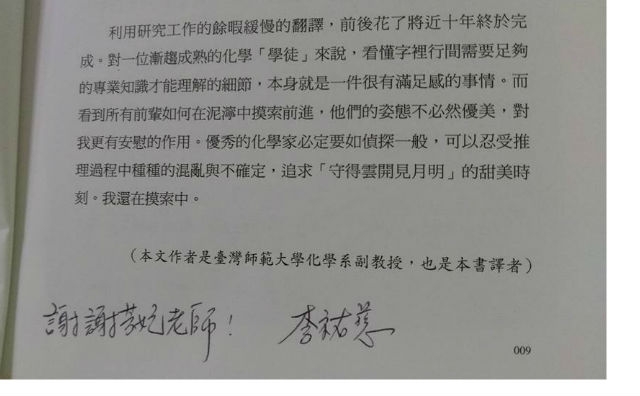 利用研究工作的餘暇緩慢的翻譯，前後花了將近十年終於完
成。對一位漸趨成熟的化學「學徒」來說，看懂字裡行間需要足夠
的專業知識才能理解的細節，本身就是一件很有滿足感的事情。而
看到所有前輩如何在泥濘中摸索前進，他們的姿態不必然優美，對
我更有安慰的作用。優秀的化學家必定要如偵探一般，可以忍受推
理過程中種種的混亂與不確定，追求「守得雲開見月明」的甜美時
刻。我還在摸索中。
（本文作者是臺灣師範大學化學系副教授，也是本書譯者）
謝謝芳妃老師！ 李祐慈
009